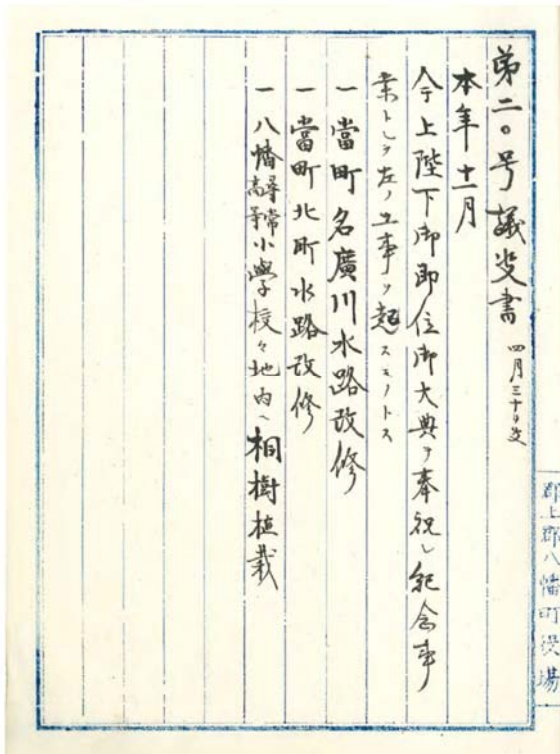 第二〇号議案書 四月三十日発
本年十一月
今上陛下御即位御大典ヲ奉祝シ紀念事
業トシテ左ノ工事ヲ起スモノトス
一 當町名廣川水路改修
一 當町北町水路改修
一 八幡尋常高等小學校々地内ヘ桐樹植栽
郡上郡八幡町役場